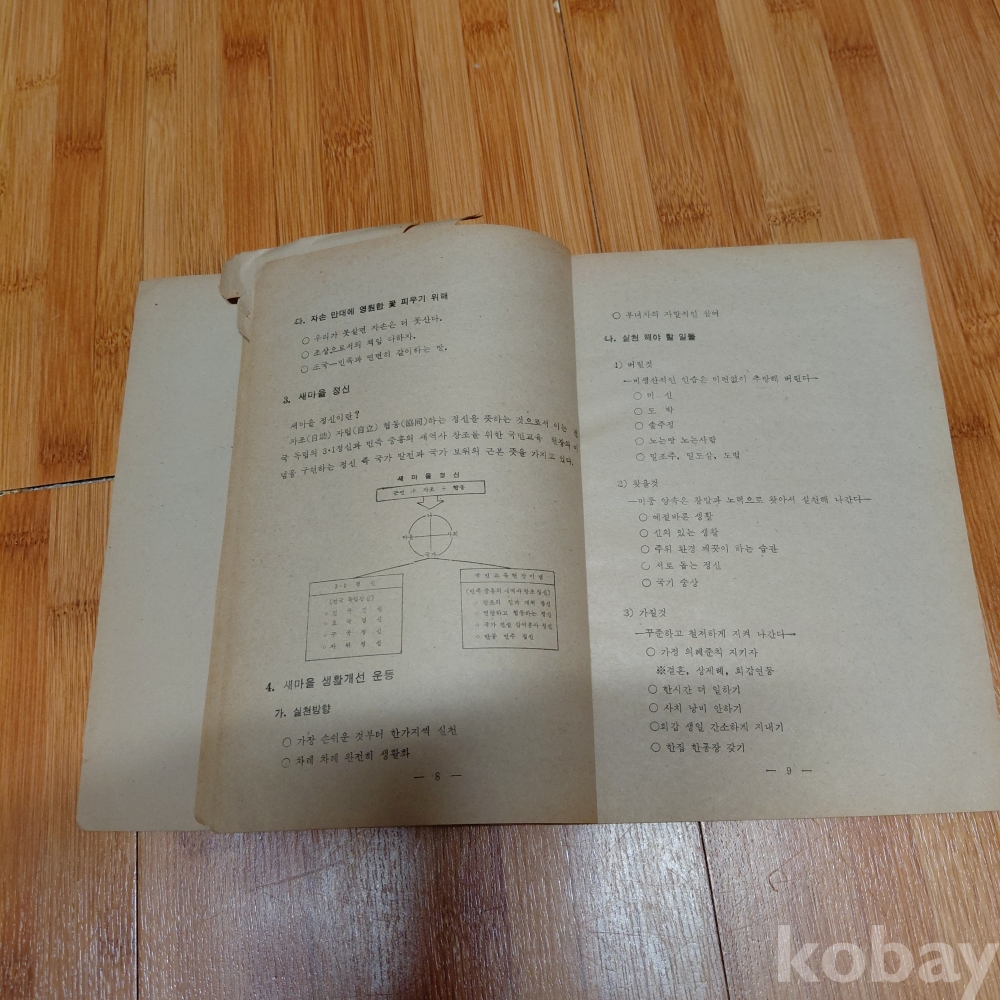 다. 자손 만대에 영원한 꽃 피우기 위해
○ 우리가 못살면 자손은 더 못산다.
○ 조상으로서의 책임 다하자.
○ 조국—민족과 면면히 같이하는 것.
3. 새마을 정신
새마을 정신이란?
자조(自助) 자립(自立) 협동(協同)하는 정신을 뜻하는 것으로서 이는 한
국 독립의 3·1정신과 민족 중흥의 새역사 창조를 위한 국민교육 헌장의 이
념을 구현하는 정신 즉 국가 발전과 국가 보위의 근본 뜻을 가지고 있다.
새마을정신
근면 + 자조 + 협동
나
마을
사회
국가
3·1 정신
(한국 독립정신)
국민교육헌장이념
(민족 중흥의 새역사 창조 정신)
4. 새마을 생활개선 운동
가. 실천방향
○ 가장 손쉬운 것부터 한가지씩 실천
○ 차례 차례 완전히 생활화
— 8 —
○ 부녀자의 자발적인 참여
나. 실천 해야 할 일들
1) 버릴것
—비생산적인 인습은 미련없이 추방해 버린다—
○ 미 신
○ 도 박
○ 술주정
○ 노는땅 노는사람
○ 밀조주, 밀도살, 도벌
2) 찾을것
—미풍 양속은 창안과 노력으로 찾아서 실천해 나간다—
○ 예절바른 생활
○ 신의 있는 생활
○ 주위 환경 깨끗이 하는 습관
○ 서로 돕는 정신
○ 국기 숭상
3) 가질것
—꾸준하고 철저하게 지켜 나간다—
○ 가정 의례준칙 지키자
※결혼, 상제례, 회갑연등
○ 한시간 더 일하기
○ 사치 낭비 안하기
○회갑 생일 간소하게 지내기
○ 한집 한통장 갖기
— 9 —
kobay